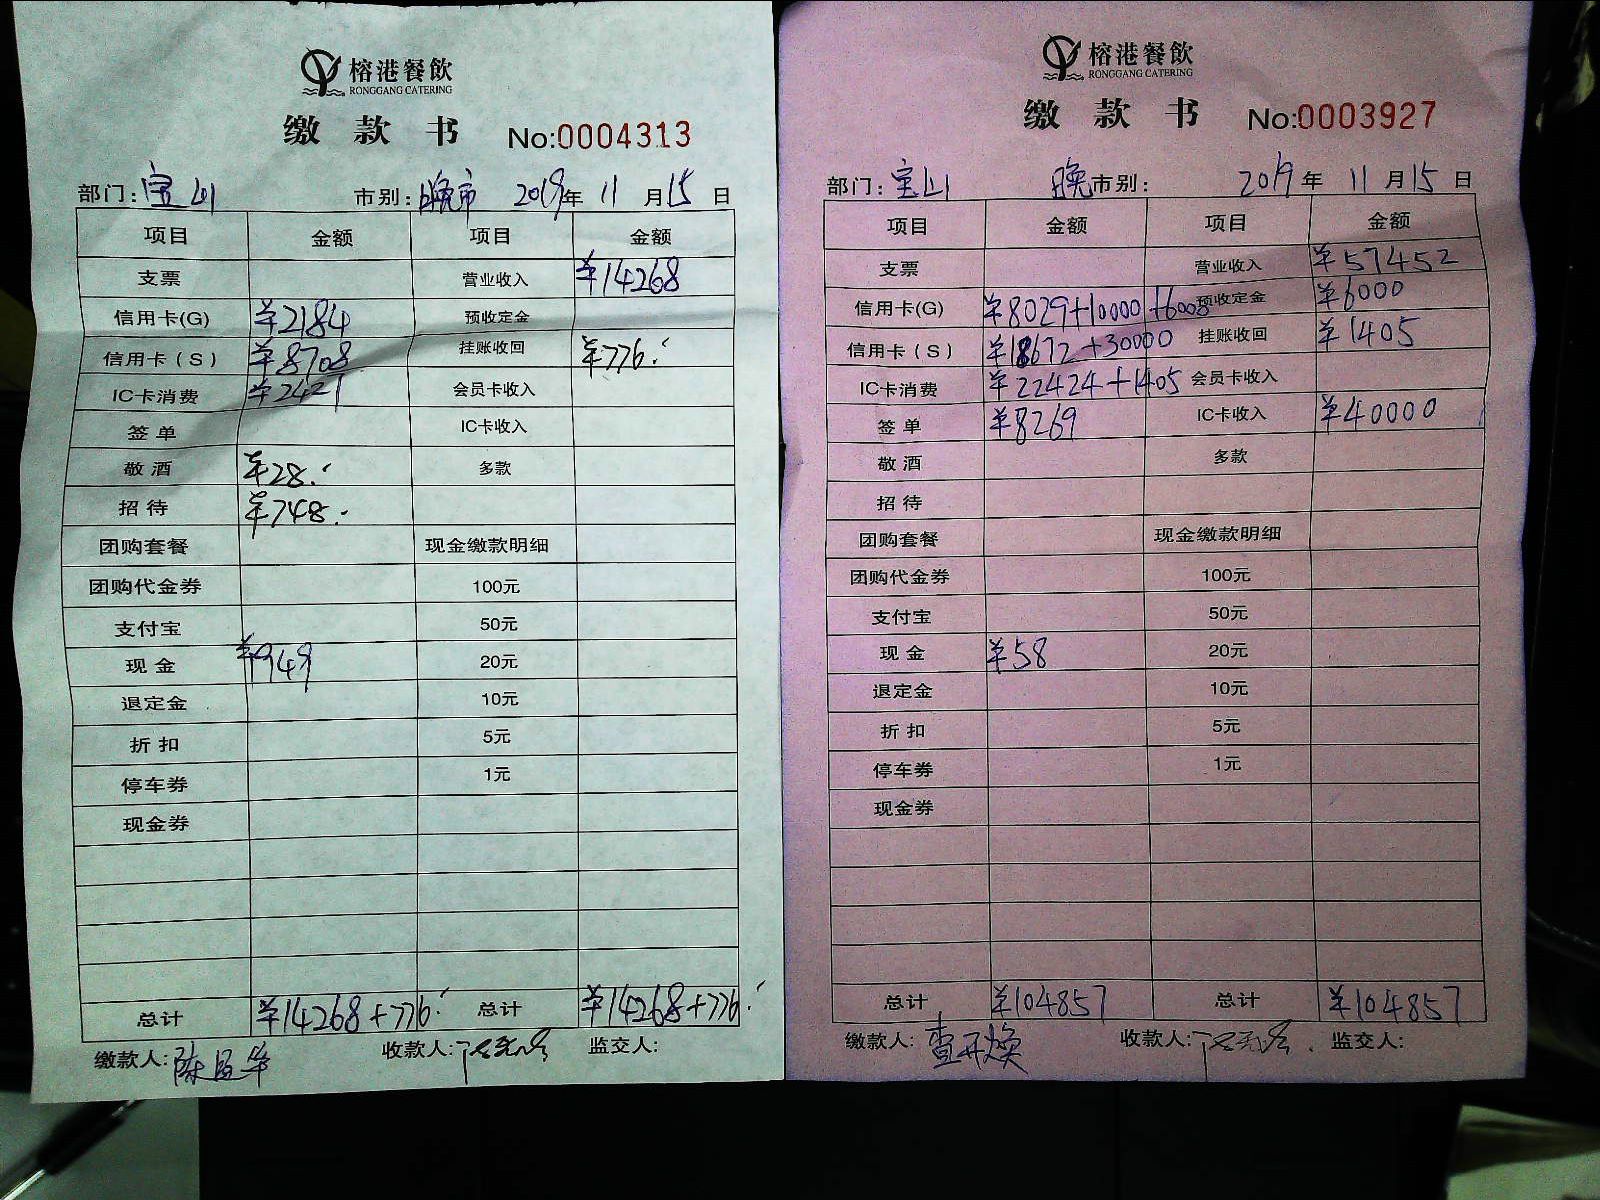 榕港餐飲
RONGGANG CATERING
缴款书 No:0004313
部门:宝山 市别:晚市 2019年11月15日
项目 金额 项目 金额
支票 营业收入 ¥14268
信用卡(G) ¥2184 预收定金
信用卡(S) ¥8708 挂账收回 ¥776.
IC卡消费 ¥2427 会员卡收入
签单 IC卡收入
敬酒 ¥28. 多款
招待 ¥748.
团购套餐 现金缴款明细
团购代金券 100元
支付宝 50元
现金 ¥949 20元
退定金 10元
折扣 5元
停车券 1元
现金券
总计 ¥14268+776. 总计 ¥14268+776.
缴款人: 收款人: 监交人:
榕港餐飲
RONGGANG CATERING
缴款书 No:0003927
部门:宝山 晚市别: 2019年11月15日
项目 金额 项目 金额
支票 营业收入 ¥57452
信用卡(G) ¥8029+10000+6008 预收定金 ¥6000
信用卡(S) ¥18672+30000 挂账收回 ¥1405
IC卡消费 ¥22424+1405 会员卡收入
签单 ¥8269 IC卡收入 ¥40000
敬酒 多款
招待
团购套餐 现金缴款明细
团购代金券 100元
支付宝 50元
现金 ¥58 20元
退定金 10元
折扣 5元
停车券 1元
现金券
总计 ¥104857 总计 ¥104857
缴款人:查开焕 收款人: 监交人: